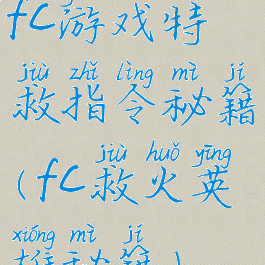 fc游戏特
jiù zhǐ lìng mì jí
救指令秘籍
jiù huǒ yīng
(fc救火英
xióng mì jí
雄秘籍)